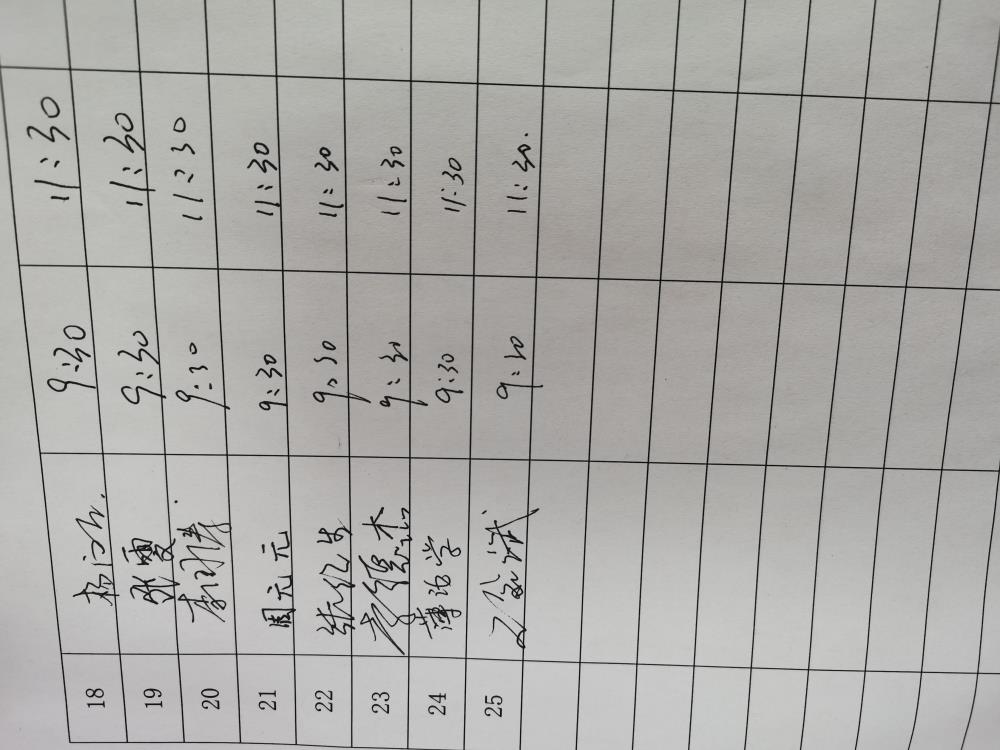 18 9:30 11:30
19 张雯 9:30 11:30
20 9:30 11:30
21 周元元 9:30 11:30
22 9:30 11:30
23 9:30 11:30
24 薄治学 9:30 11:30
25 9:30 11:30.